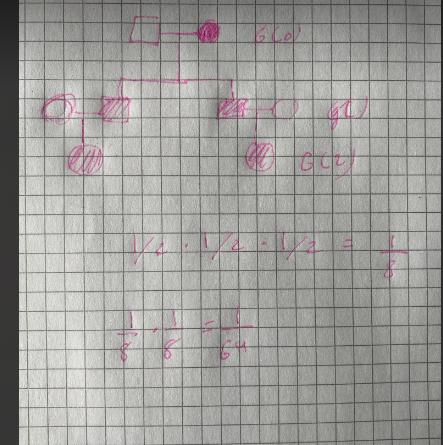 G(0)
g(1)
G(2)
1/2 · 1/2 · 1/2 = 1/8
1/8 · 1/8 = 1/64